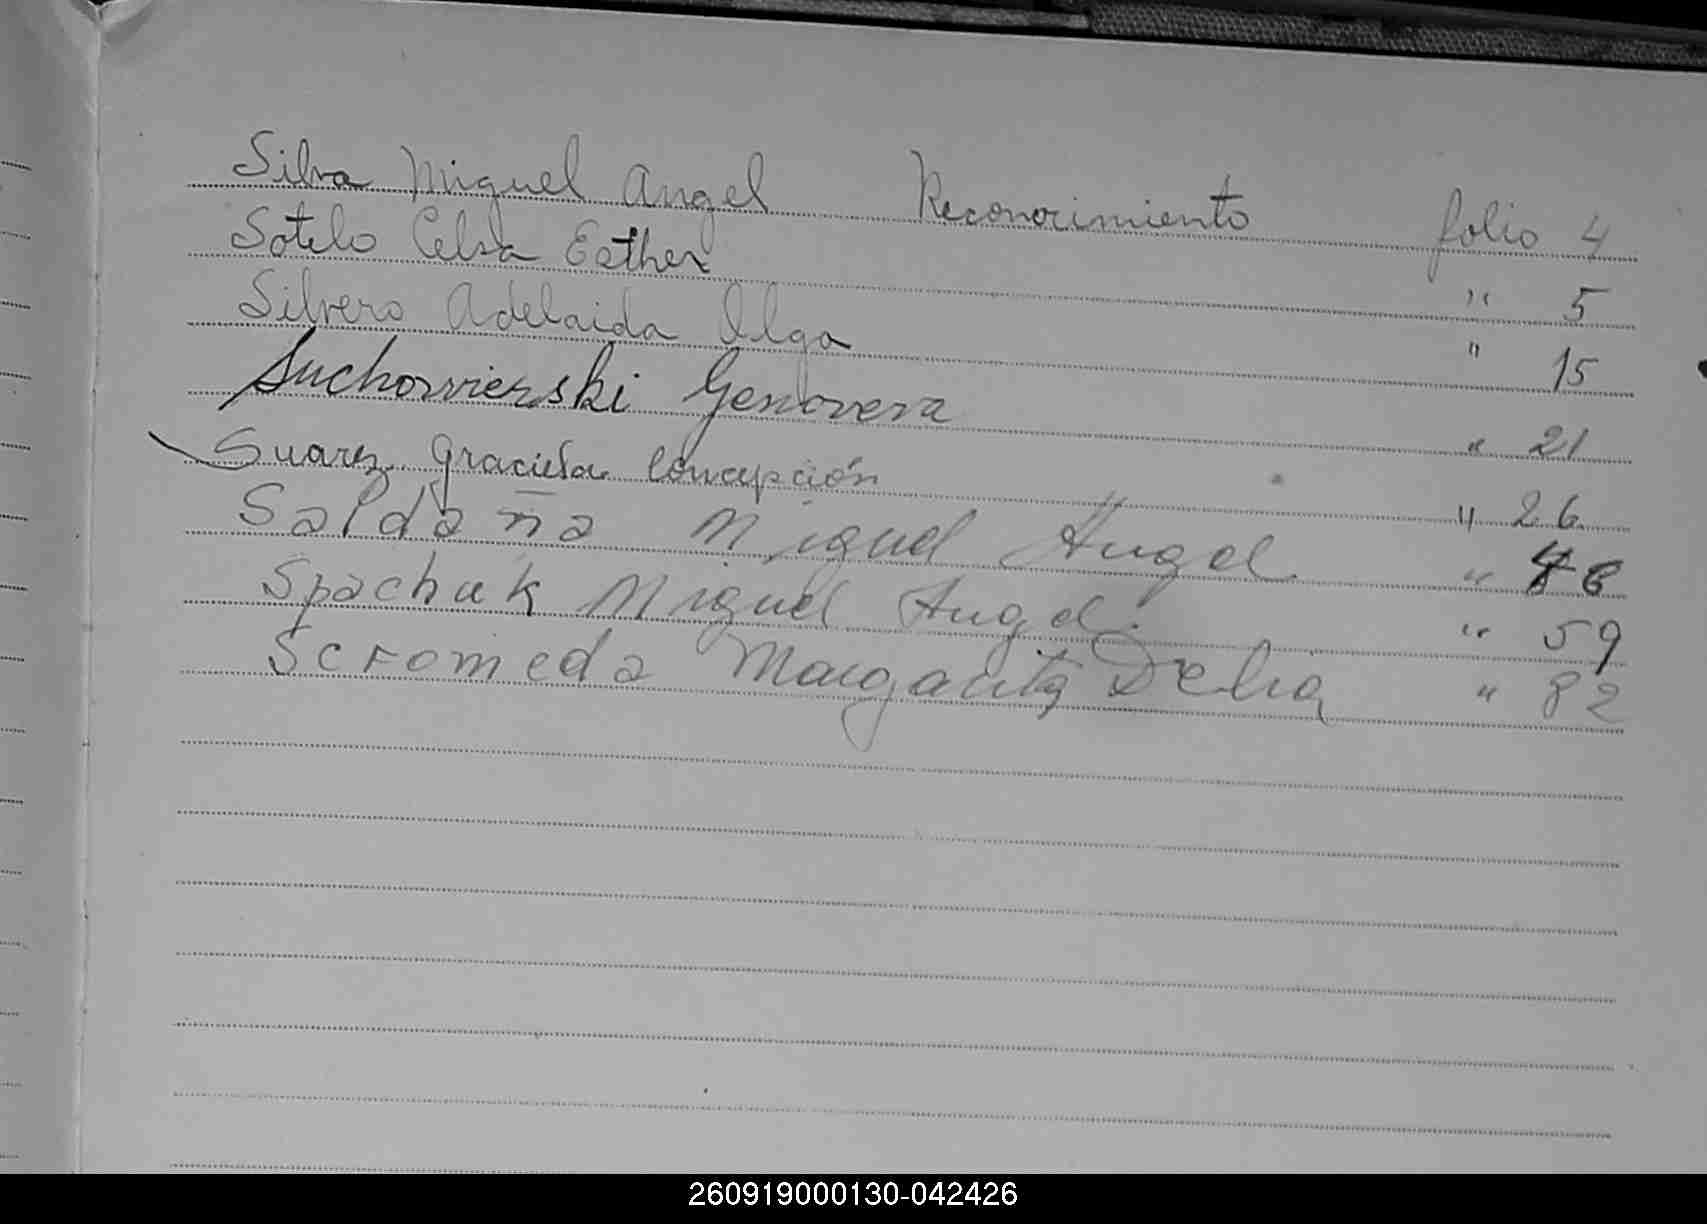 Silva Miguel Angel Reconocimiento folio 4
Sotelo Celsa Esther " 5
Silvero Adelaida Olga " 15
Suchowierski Genovera " 21
Suarez Graciela Concepción " 26
Saldaña Miguel Angel " 48
Spachuk Miguel Angel " 59
Scromeda Margarita Delia " 82
260919000130-042426